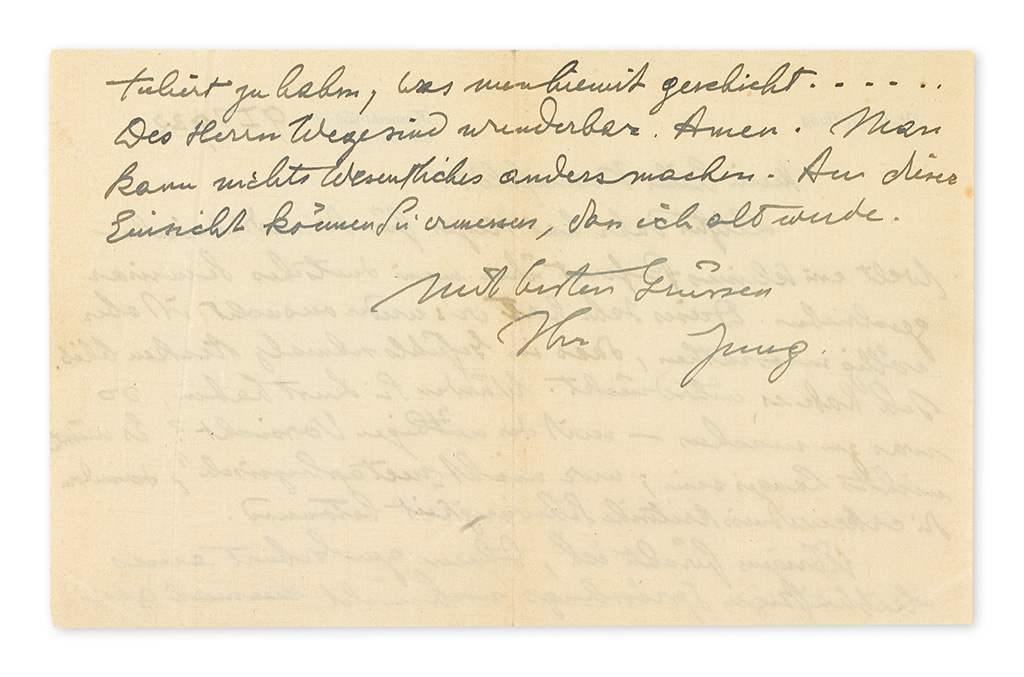 tuliert zu haben, was nun hiemit geschieht. . . . . .
Des Herrn Wege sind wunderbar. Amen. Man
kann nichts Wesentliches anders machen. An dieser
Einsicht können Sie ermessen, dass ich alt werde.
Mit besten Grüssen
Ihr Jung.